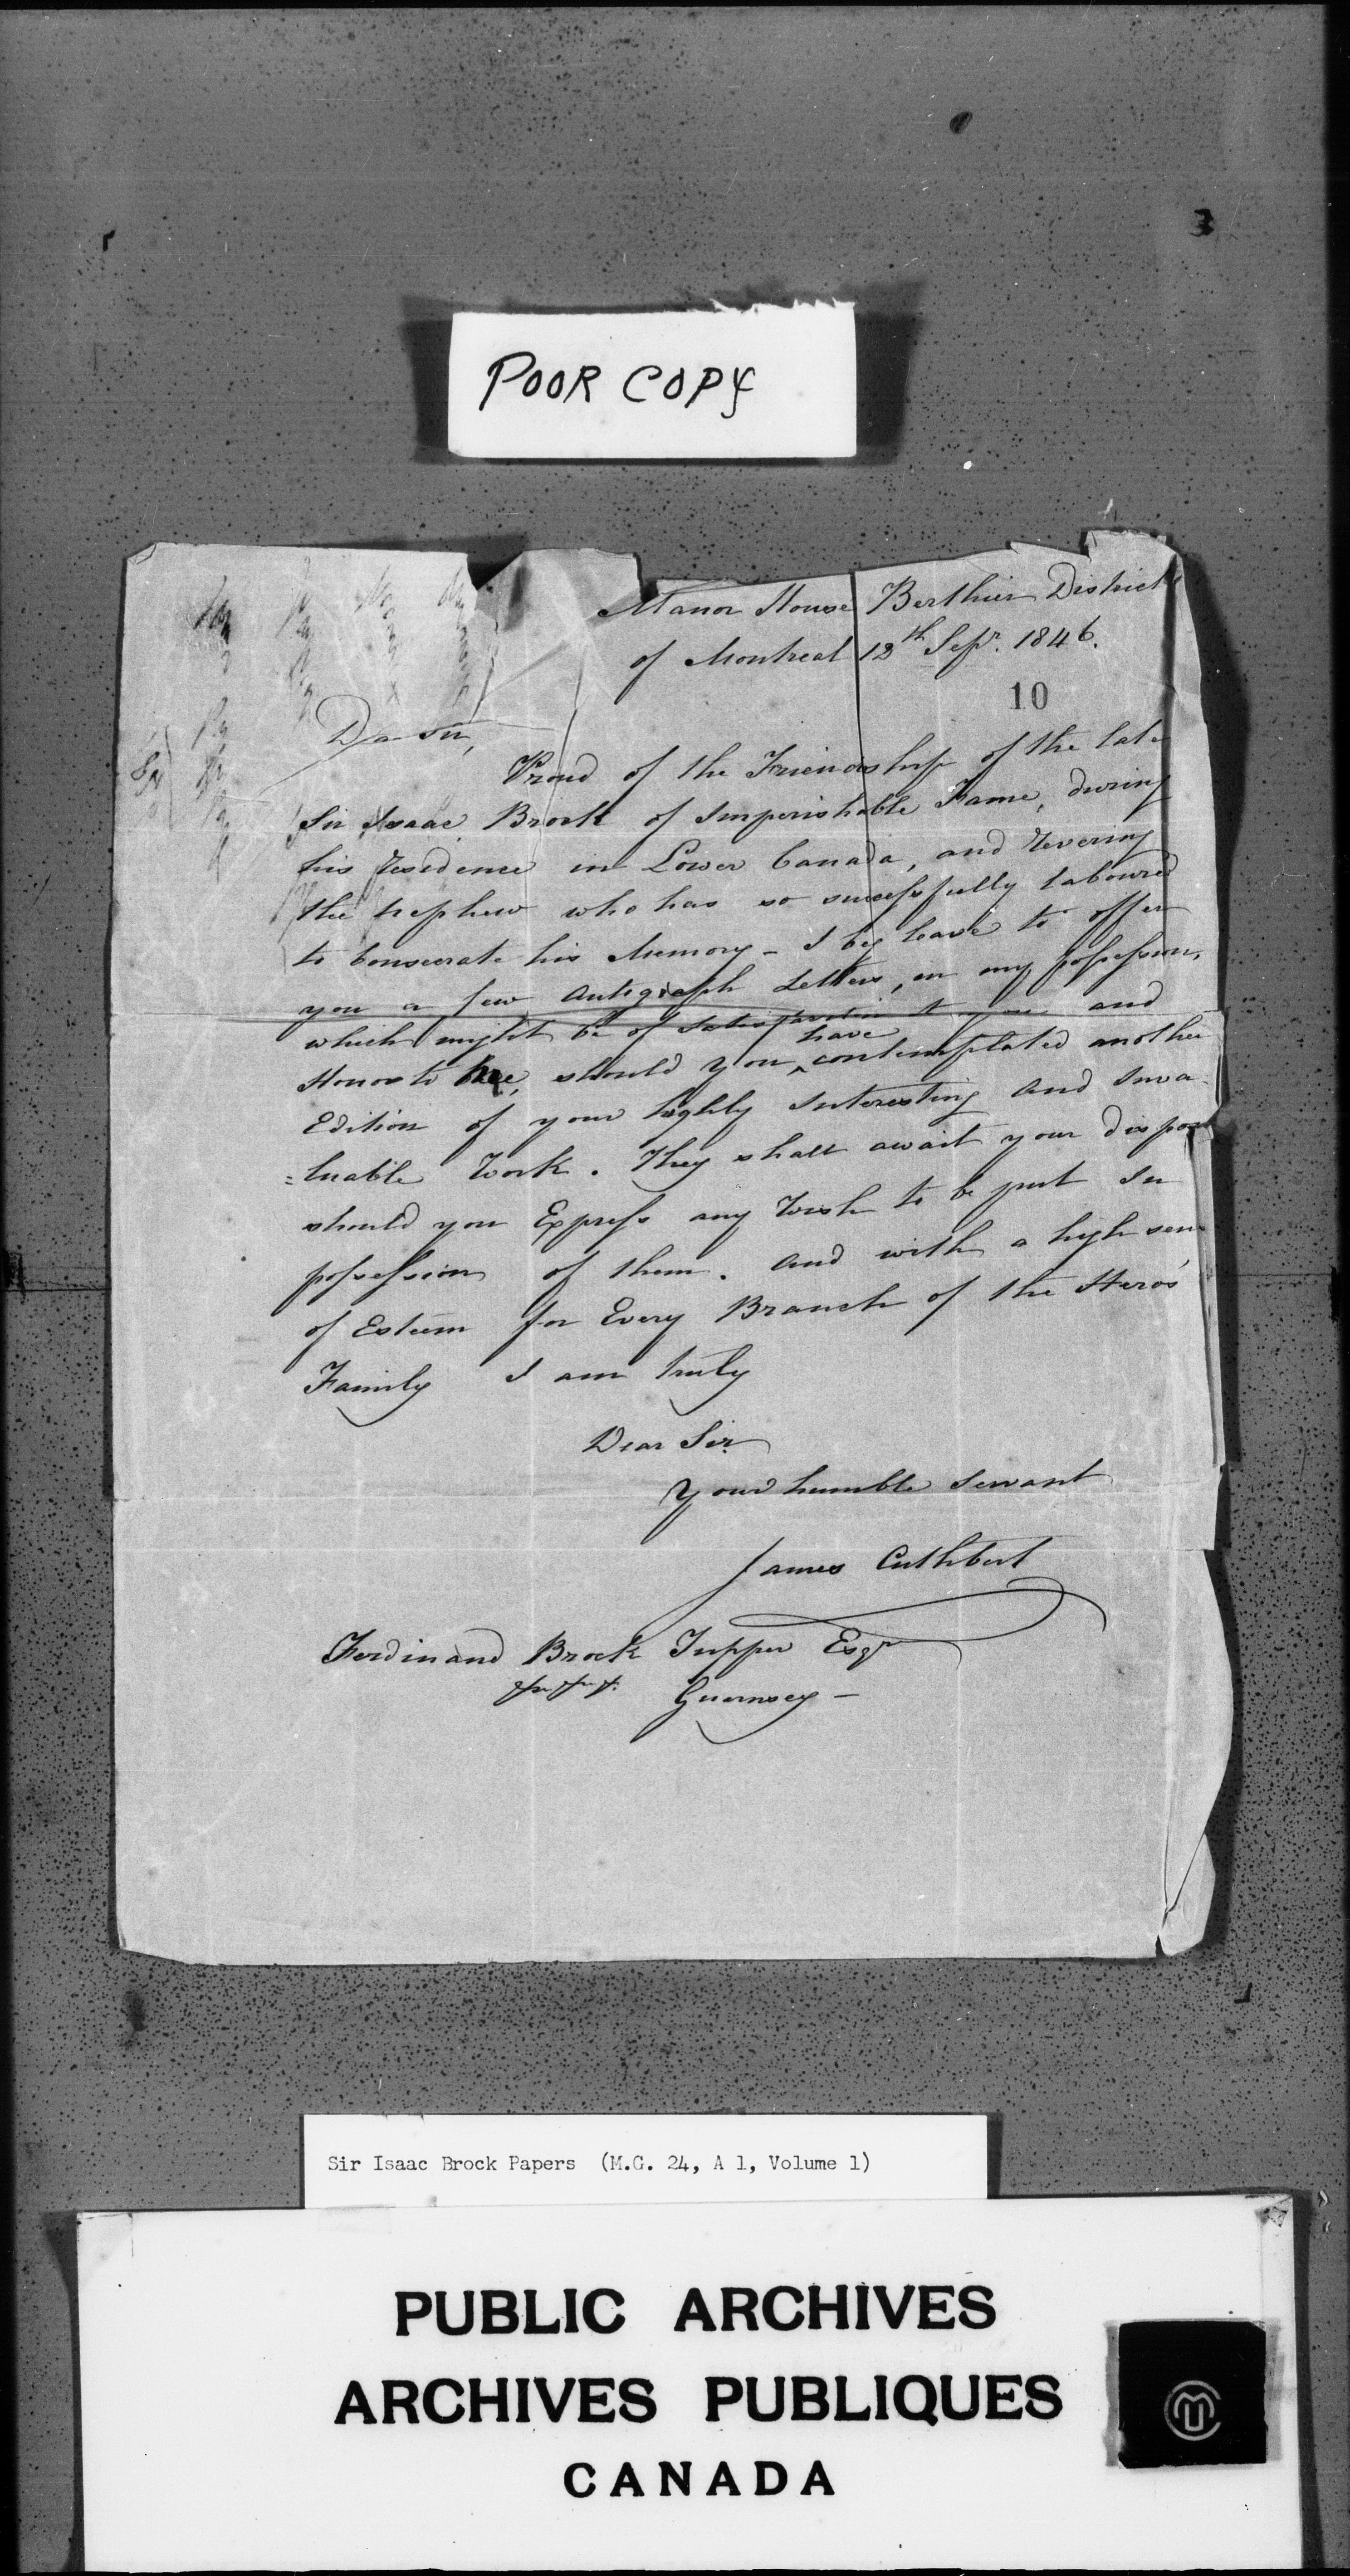 POOR COPY
Manor House Berthier District
of Montreal 12th Sepr. 1846.
10
Dr Sir,
Proud of the Friendship of the late
Sir Isaac Brock of Imperishable Fame, during
his residence in Lower Canada, and revering
the nephew who has so successfully laboured
to Consecrate his Memory - I beg leave to offer
you a few Autograph Letters, in my possession,
which might be of satisfaction to you and
Honor to me, should you have contemplated another
Edition of your highly Interesting and Inva
=luable Work. They shall await your dispos
should you Express any Wish to be put In
possession of them. And with a high sen
of Esteem for Every Branch of the Hero's
Family I am truly
Dear Sir
Your humble Servant
James Cuthbert
Ferdinand Brock Tupper Esqr
Guernsey -
Sir Isaac Brock Papers (M.G. 24, A 1, Volume 1)
PUBLIC ARCHIVES
ARCHIVES PUBLIQUES
CANADA